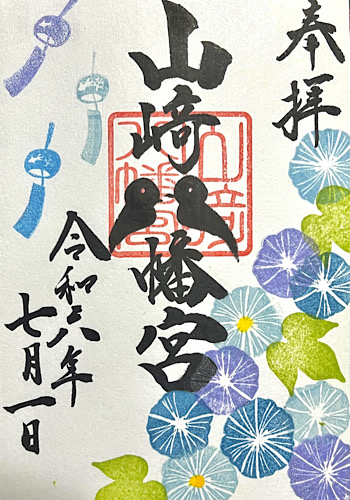 奉拝
山崎八幡宮
山崎八幡宮
令和六年
七月一日